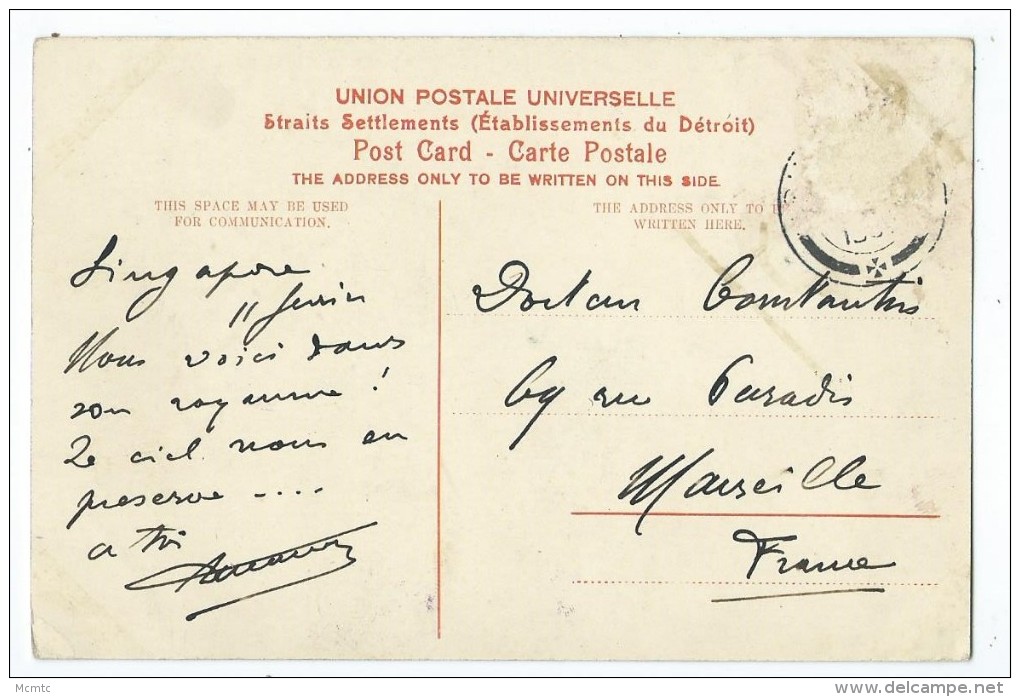 UNION POSTALE UNIVERSELLE
Straits Settlements (Établissements du Détroit)
Post Card - Carte Postale
THE ADDRESS ONLY TO BE WRITTEN ON THIS SIDE.
THIS SPACE MAY BE USED
FOR COMMUNICATION.
THE ADDRESS ONLY TO
WRITTEN HERE.
Singapore
11 fevrier
Nous voici dans
son royaume !
Le ciel nous en
preserve ....
a toi
Docteur Constantin
69 rue Paradis
Marseille
France
Mcmtc
delcampe.net